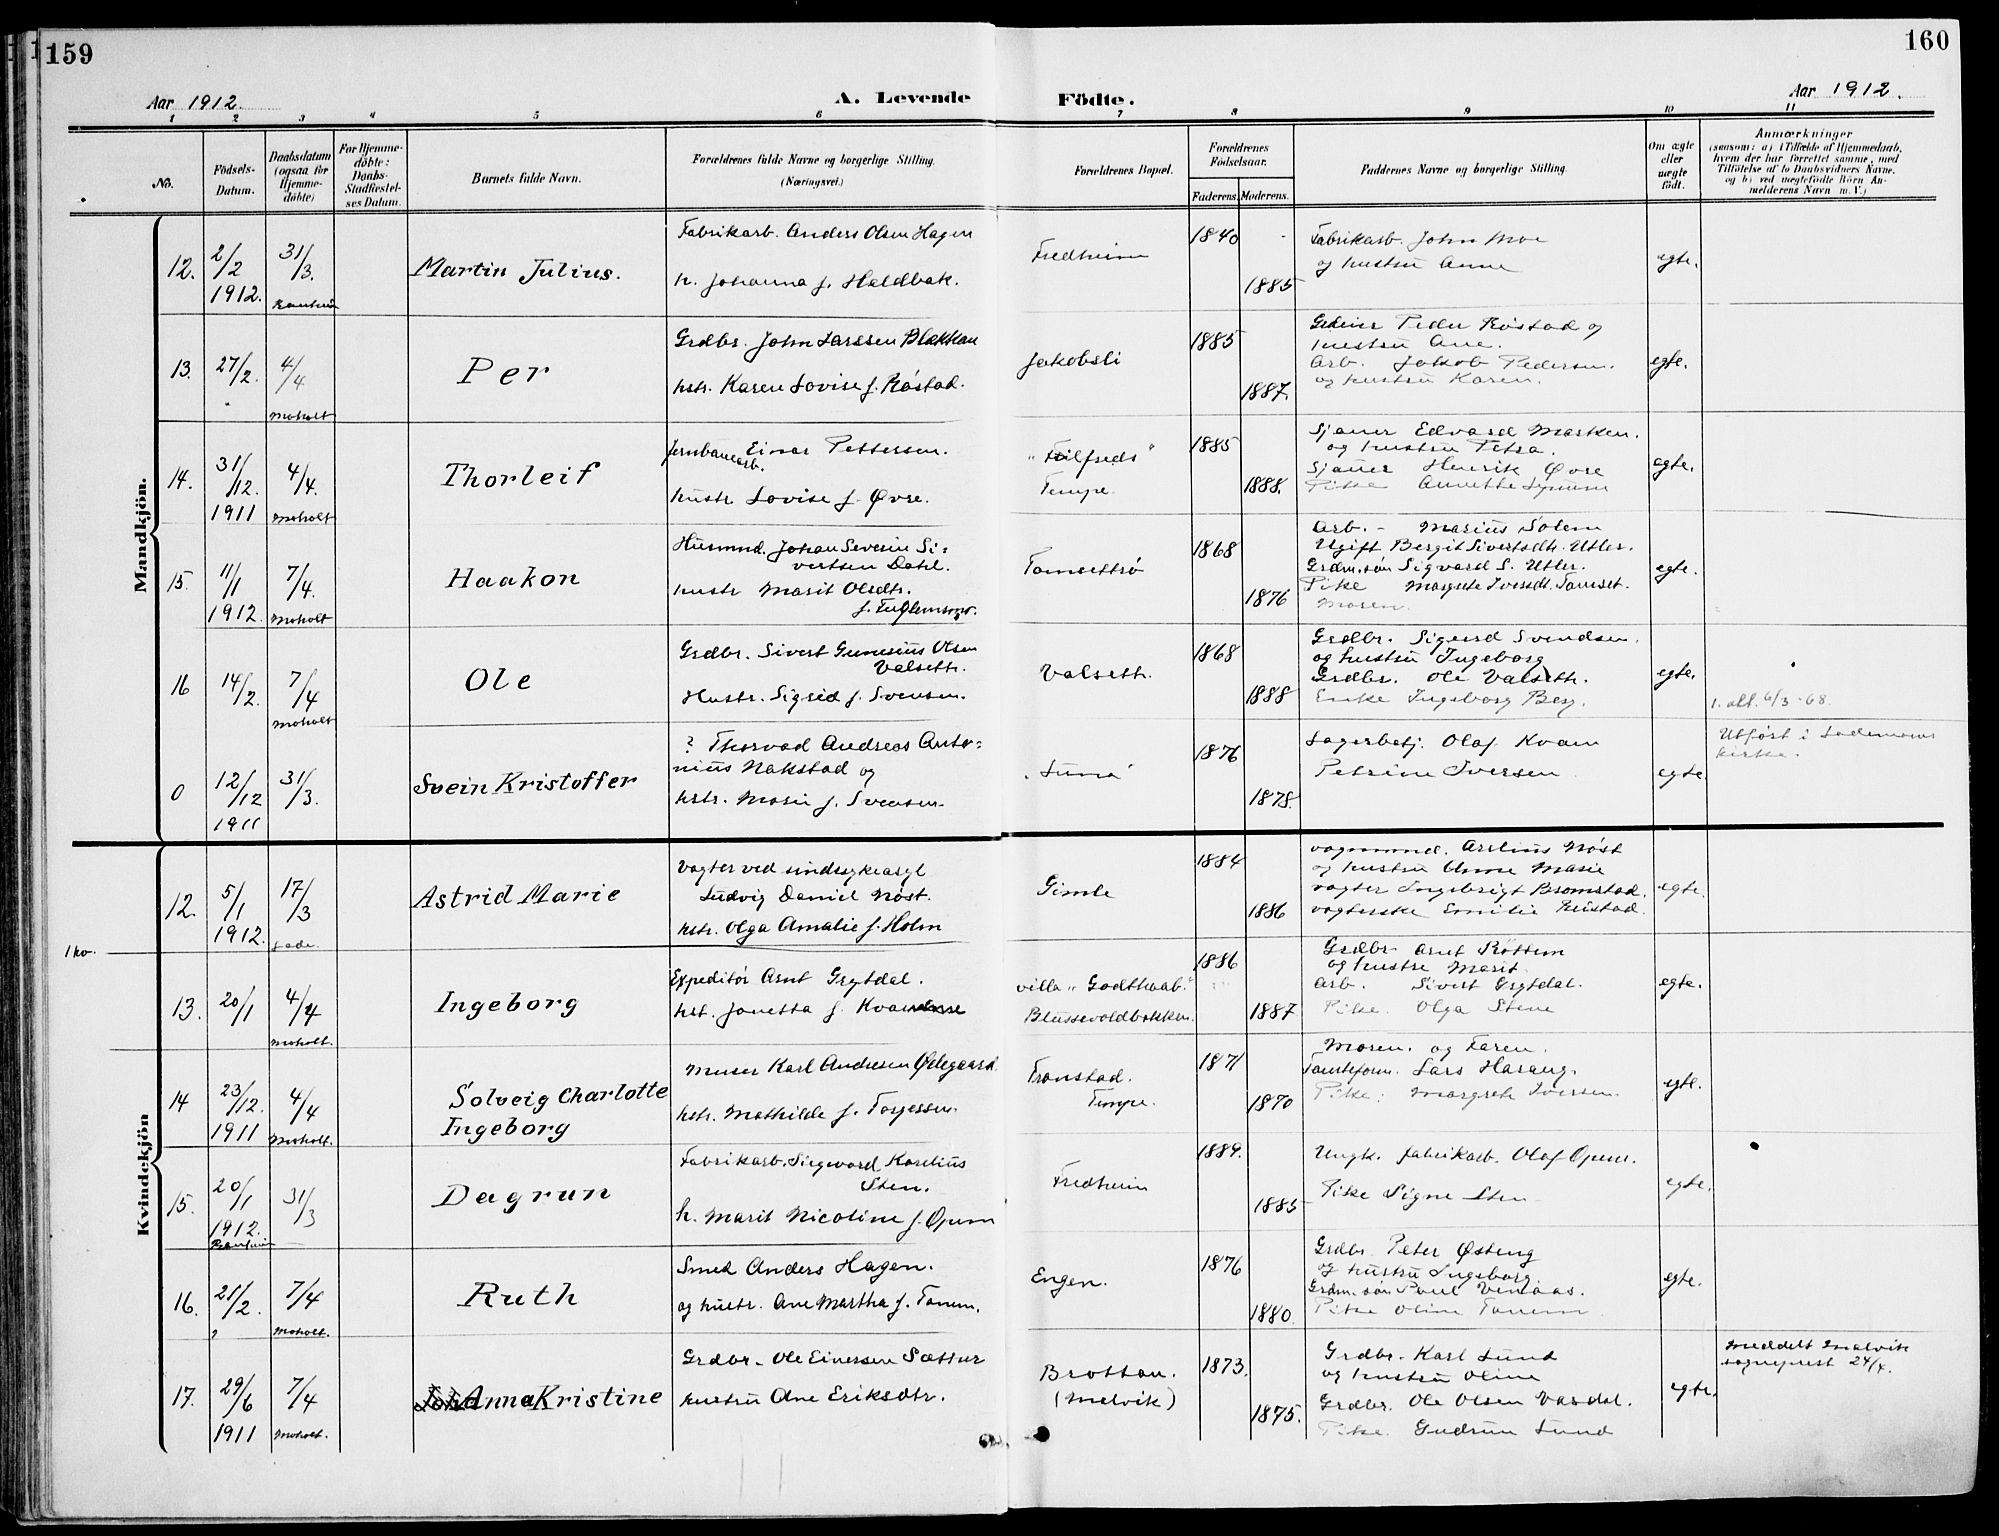 159
160
Aar 1912.
A. Levende Födte.
Aar 1912.
1 2 3 4 5 6 7 8 9 10 11
No.
Födsels-Datum.
Daabsdatum (ogsaa for Hjemme-döbte)
For Hjemme-döbte: Daabs-Stadfæstel-ses Datum.
Barnets fulde Navn.
Forældrenes fulde Navne og borgerlige Stilling.
(Næringsvei.)
Forældrenes Bopæl.
Forældrenes Födselsaar.
Faderens. Moderens.
Faddernes Navne og borgerlige Stilling.
Om ægte eller uægte födt.
Anmærkninger
(saasom: a) i Tilfælde af Hjemmedaab, hvem der har forrettet samme, med Tilföielse af to Daabsvidners Navne, og b) ved uægtefödte Börn Anmelderens Navn m. V.)
Mandkjön.
12. 2/2 1912. 31/3. Martin Julius.
Fabrikarb. Anders Olsen Hagen
h. Johanna f. Haldbak.
Fredheim 1840 1885
Fabrikarb. John Moe
og hustru Anne
egte.
13. 27/2. 4/4 Moholt Per
Grdbr. John Larssen Blakkan
hstr. Karen Lovise f. Røstad.
Jakobsli 1885 1887.
Peder Røstad og
hustru Ane.
Arb. Jakob Pedersen.
og hustru Karen.
egte.
14. 31/12. 1911 4/4. Moholt Thorleif
Jernbanearb. Einar Pettersen.
hustr Lovise f. Øvre.
Tempe. 1885 1888.
Sjauer Edvard Marken.
og hustru Petra.
Sjauer Henrik Øvre
Pike Annette
egte.
15. 11/1 1912. 7/4. Moholt Haakon
Husmnd. Johan Severin Si-
vertsen Dahl.
hustr Marit Olsdtr.
Tomsettrø 1868 1876
Arb. - Marius Solem
Ugift Bergit Sivertsdtr. Utler.
Grdm.søn Sigvard S. Utler.
Pike Margrete Iversdt. Tomset.
Moren.
egte.
16 14/2. 7/4 Moholt Ole
Grdbr. Sivert Gunerius Olsen
Valseth.
Hustr. Sigrid f. Svensen.
Valseth. 1868 1888
Grdbr. Sigurd Svendsen.
og hustru Ingeborg
Grdbr. Ole Valseth.
Enke Ingeborg Berg.
egte.
1. att. 6/3-68.
0 12/12 1911 31/3. Svein Kristoffer
? Thorvad Andreas Anto-
nius Nakstad og
hstr. Marie f. Svensen
1876 1878.
Lagerbetj. Olaf Kvam
Petrine Iversen
egte.
Utført i Lademoens
kirke.
Kvindekjön
12. 5/1 1912. 17/3 Lade. Astrid Marie
Vagter ved sindssykeasyl
Ludvig Daniel Nøst.
hstr. Olga Amalie f. Holm
Gimle 1884 1886
vognmnd. Nøst
og hustru Anne Marie
vagter Ingebrigt Bromstad.
vagterske Emilie
egte.
13. 20/1 4/4 Moholt. Ingeborg
Expeditør Arnt Grytdal.
hst. Janetta f.
villa "Godthaab."
Blussevoldbakken. 1886 1887
Grdbr. Arnt Røttum
og hustru Marit.
Arb. Sivert Grytdal.
Pike. Olga Stene
egte.
14 23/12. 1911 4/4 Moholt. Solveig Charlotte
Ingeborg
Murer Karl Andresen Ødegaard.
hstr. Mathilde f. Torgessen.
Tronstad.
Tempe. 1871 1870
Moren. og Faren.
Tomteform. Lars Harang.
Pike: Margrete Iversen.
egte.
15. 20/1 1912. 31/3 Dagrun
Fabrikarb. Siegvard Karelius
Sten.
h. Marit Nicoline f. Opem
Fredheim 1889. 1885
Ungk. fabrikarb. Olaf Opem.
Pike Signe Sten
egte.
16. 21/2. 7/4 Moholt. Ruth
Smed Anders Hagen.
og hustr. Ane Martha f. Tanem.
Engen. 1876 1880
Grdbr. Peter Østeng
og hustru Ingeborg.
Grdm. søn Paul
Pike Oline Tanem
egte.
17. 29/6 1911 7/4 Moholt. Anna Kristine
Grdbr. Ole Einersen Sætter
hustru Ane Eriksdtr.
Brottan.
(Malvik) 1873. 1875.
Grdbr. Karl Lund
og hustru Oline
Grdbr. Ole Olsen Vardal.
Pike. Gudrun Lund
egte.
Meddelt Malvik
sogneprest 24/4.